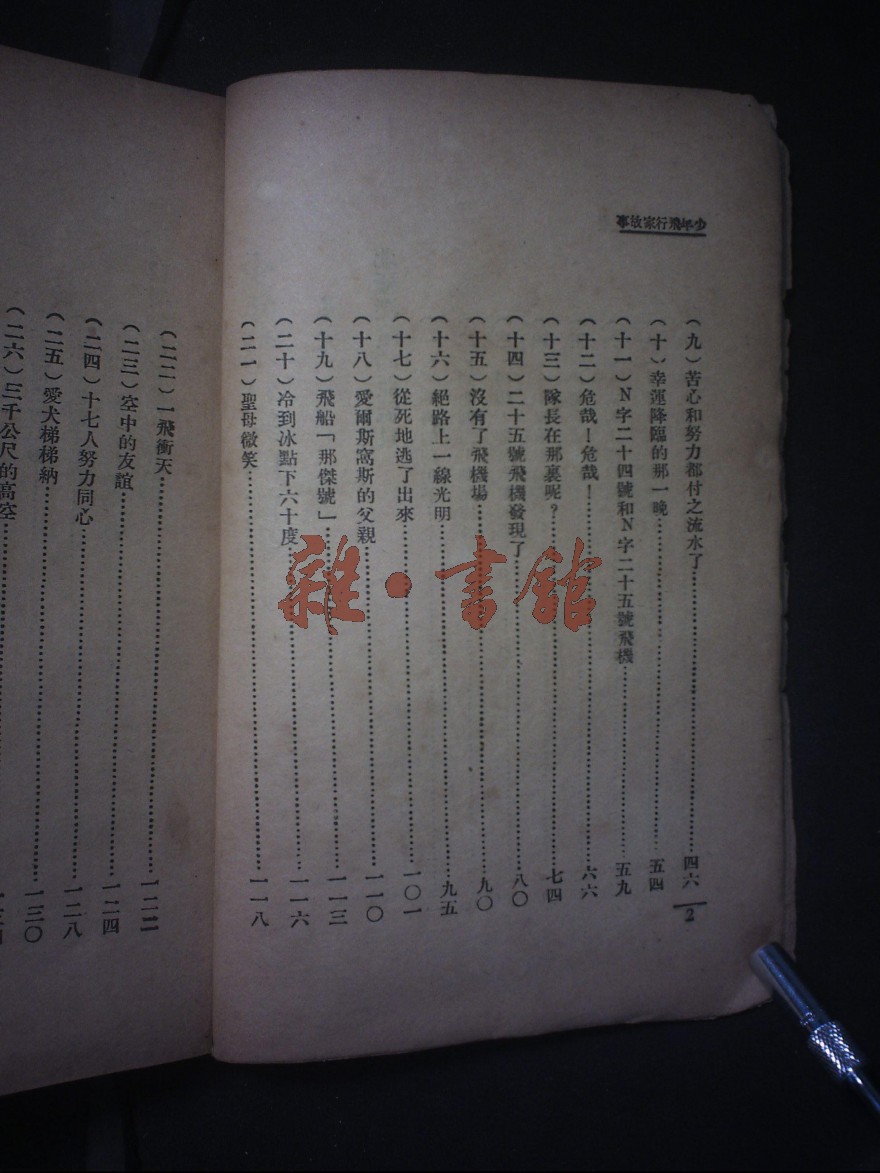 少年飛行家故事
(九)苦心和努力都付之流水了……四六
(十)幸運降臨的那一晚……五四
(十一)N字二十四號和N字二十五號飛機……五九
(十二)危哉!危哉!……六六
(十三)隊長在那裏呢?……七四
(十四)二十五號飛機發現了……八〇
(十五)沒有了飛機場……九〇
(十六)絕路上一線光明……九五
(十七)從死地逃了出來……一〇一
(十八)愛爾斯窩斯的父親……一一〇
(十九)飛船「那傑號」……一一三
(二十)冷到冰點下六十度……一一六
(二一)聖母微笑……一一八
2
(二二)一飛衝天……一二二
(二三)空中的友誼……一二四
(二四)十七人努力同心……一二八
(二五)愛犬梯梯納……一三〇
(二六)三千公尺的高空……一三四
雜·書館